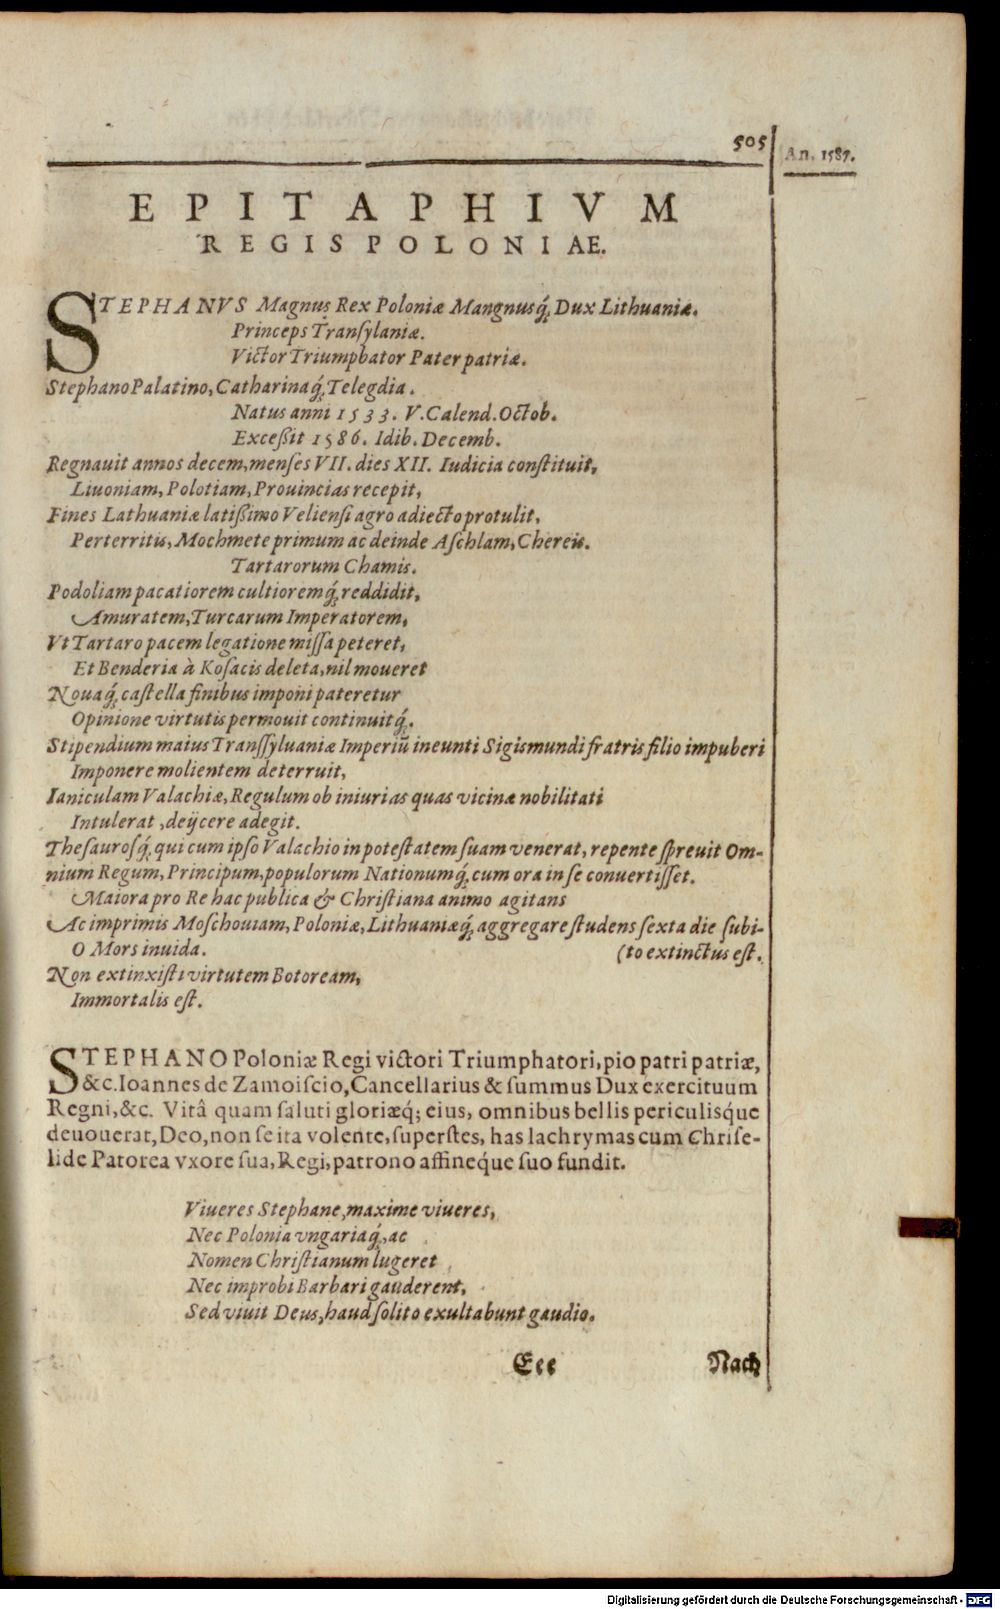 505
An. 1587.
EPITAPHIVM
REGIS POLONIAE.
STEPHANVS Magnus Rex Poloniæ Mangnusq́; Dux Lithuaniæ.
Princeps Tranſylaniæ.
Victor Triumphator Pater patriæ.
Stephano Palatino, Catharinaq́; Telegdia.
Natus anni 1533. V. Calend. Octob.
Exceßit 1586. Idib. Decemb.
Regnauit annos decem, menſes VII. dies XII. Iudicia conſtituit,
Liuoniam, Polotiam, Prouincias recepit,
Fines Lathuaniæ latißimo Velienſi agro adiecto protulit,
Perterritis, Mochmete primum ac deinde Aſchlam, Chereis.
Tartarorum Chamis.
Podoliam pacatiorem cultioremq́; reddidit,
Amuratem, Turcarum Imperatorem,
Vt Tartaro pacem legatione miſſa peteret,
Et Benderia à Koſacis deleta, nil moueret
Nouaq́; caſtella finibus imponi pateretur
Opinione virtutis permouit continuitq́;.
Stipendium maius Tranſſyluaniæ Imperiũ ineunti Sigismundi fratris filio impuberi
Imponere molientem deterruit,
Ianiculam Valachiæ, Regulum ob iniurias quas vicinæ nobilitati
Intulerat, deijcere adegit.
Theſauroſq́; qui cum ipſo Valachio in poteſtatem ſuam venerat, repente ſpreuit Om-
nium Regum, Principum, populorum Nationumq́; cum ora in ſe conuertiſſet.
Maiora pro Re hac publica & Chriſtiana animo agitans
Ac imprimis Moſchouiam, Poloniæ, Lithuaniæq́; aggregare ſtudens ſexta die ſubi-
O Mors inuida. (to extinctus eſt.
Non extinxiſti virtutem Botoream,
Immortalis eſt.
STEPHANO Poloniæ Regi victori Triumphatori, pio patri patriæ,
&c. Ioannes de Zamoiſcio, Cancellarius & ſummus Dux exercituum
Regni, &c. Vitâ quam ſaluti gloriæq́; eius, omnibus bellis periculisque
deuouerat, Deo, non ſe ita volente, ſuperſtes, has lachrymas cum Chriſe-
lide Patorea vxore ſua, Regi, patrono affineq́ue ſuo fundit.
Viueres Stephane, maxime viueres,
Nec Polonia vngariaq́;, ac
Nomen Chriſtianum lugeret
Nec improbi Barbari gauderent,
Sed viuit Deus, haud ſolito exultabunt gaudio.
Eee Nach
Digitalisierung gefördert durch die Deutsche Forschungsgemeinschaft - DFG